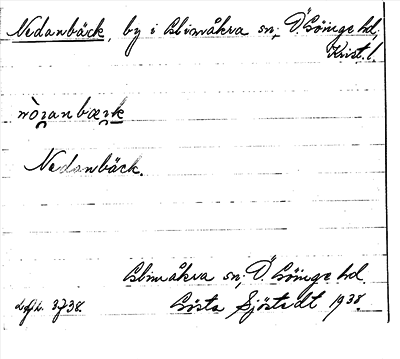 Nedanbäck, by i Glimåkra sn, Ö. Göinge hd,
Krist. l.
Nedanbäck.
Glimåkra sn, Ö. Göinge hd.
Gösta Sjöstedt 1938.